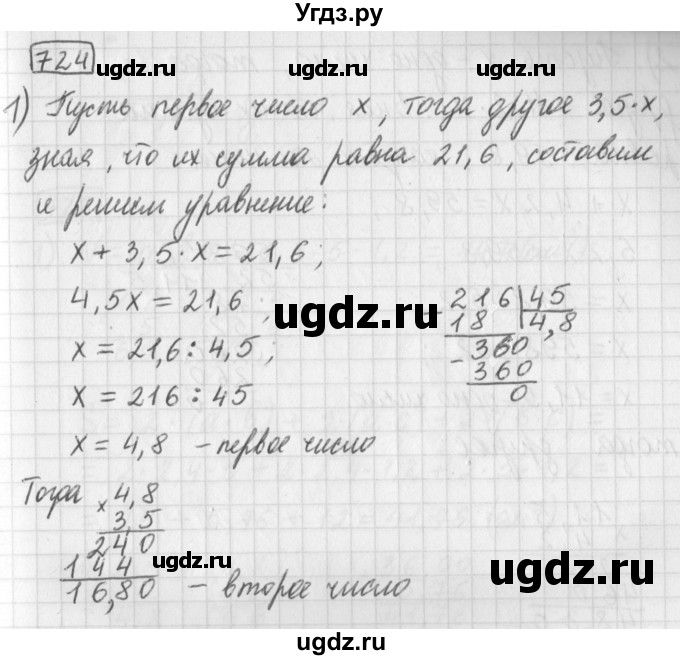 Угдз.ру
724
ugdz.ru ugdz.ru
1) Пусть первое число x, тогда другое 3,5·x,
зная, что их сумма равна 21,6, составим
и решим уравнение:
ugdz.ru ugdz.ru
x + 3,5·x = 21,6;
4,5x = 21,6;
x = 21,6 : 4,5;
x = 216 : 45
x = 4,8 – первое число
- 216 | 45
18 4,8
- 360
360
0
ugdz.ru
ugdz.ru ugdz.ru
Тогда × 4,8
3,5
240
144
16,80 – второе число
ugdz.ru
ugdz.ru
ugdz.ru